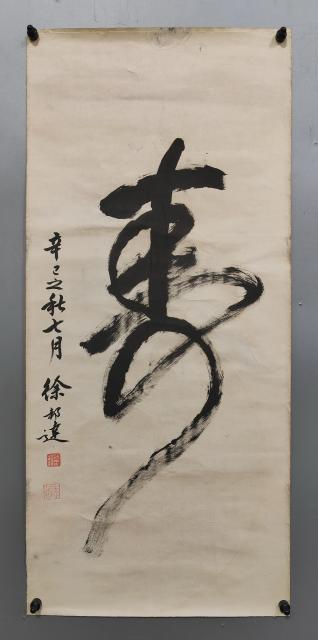 寿
辛巳之秋七月
徐邦達